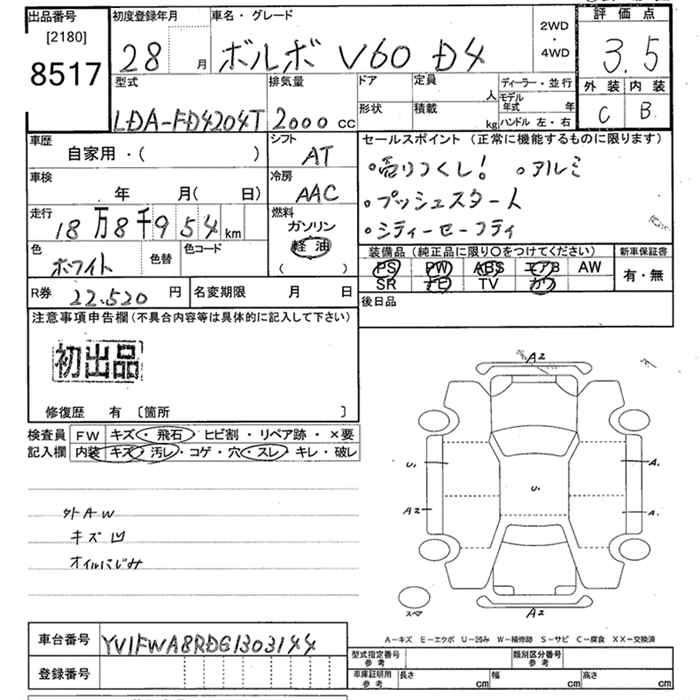 出品番号
[2180]
8517
初度登録年月
28 月
車名・グレード
ボルボ V60 D4
2WD
・
4WD
評価点
3.5
外装 内装
C B
型式
LDA-FD4204T
排気量
2000 cc
ドア
定員 人
形状
積載 kg
ディーラー・並行
モデル年式 年
ハンドル 左・右
車歴
自家用・( )
シフト
AT
車検
年 月( 日)
冷房
AAC
走行
18万8千954 km
燃料
ガソリン
軽油
( )
色
ホワイト
色替
色コード
R券 22.520 円
名変期限 月 日
セールスポイント (正常に機能するものに限ります)
・売りつくし! ・アルミ
・プッシュスタート
・シティーセーフティ
装備品(純正品に限り○をつけてください)
PS PW ABS エアB AW
SR ナビ TV カワ
新車保証書
有・無
後日品
注意事項申告欄(不具合内容等は具体的に記入して下さい)
初出品
修復歴 有 〔箇所 〕
検査員記入欄
FW キズ・飛石・ヒビ割・リペア跡・×要
内装 キズ・汚レ・コゲ・穴・スレ・キレ・破レ
外AW
キズ凹
オイルにじみ
A2
U. A.
U.
A2 A.
A2
スペア
A-キズ E-エクボ U-凹み W-補修跡 S-サビ C-腐食 XX-交換済
車台番号 YV1FWA8RDG1303144
登録番号
型式指定番号 参考
類別区分番号 参考
車庫証明用 参考
長さ cm 幅 cm 高さ cm